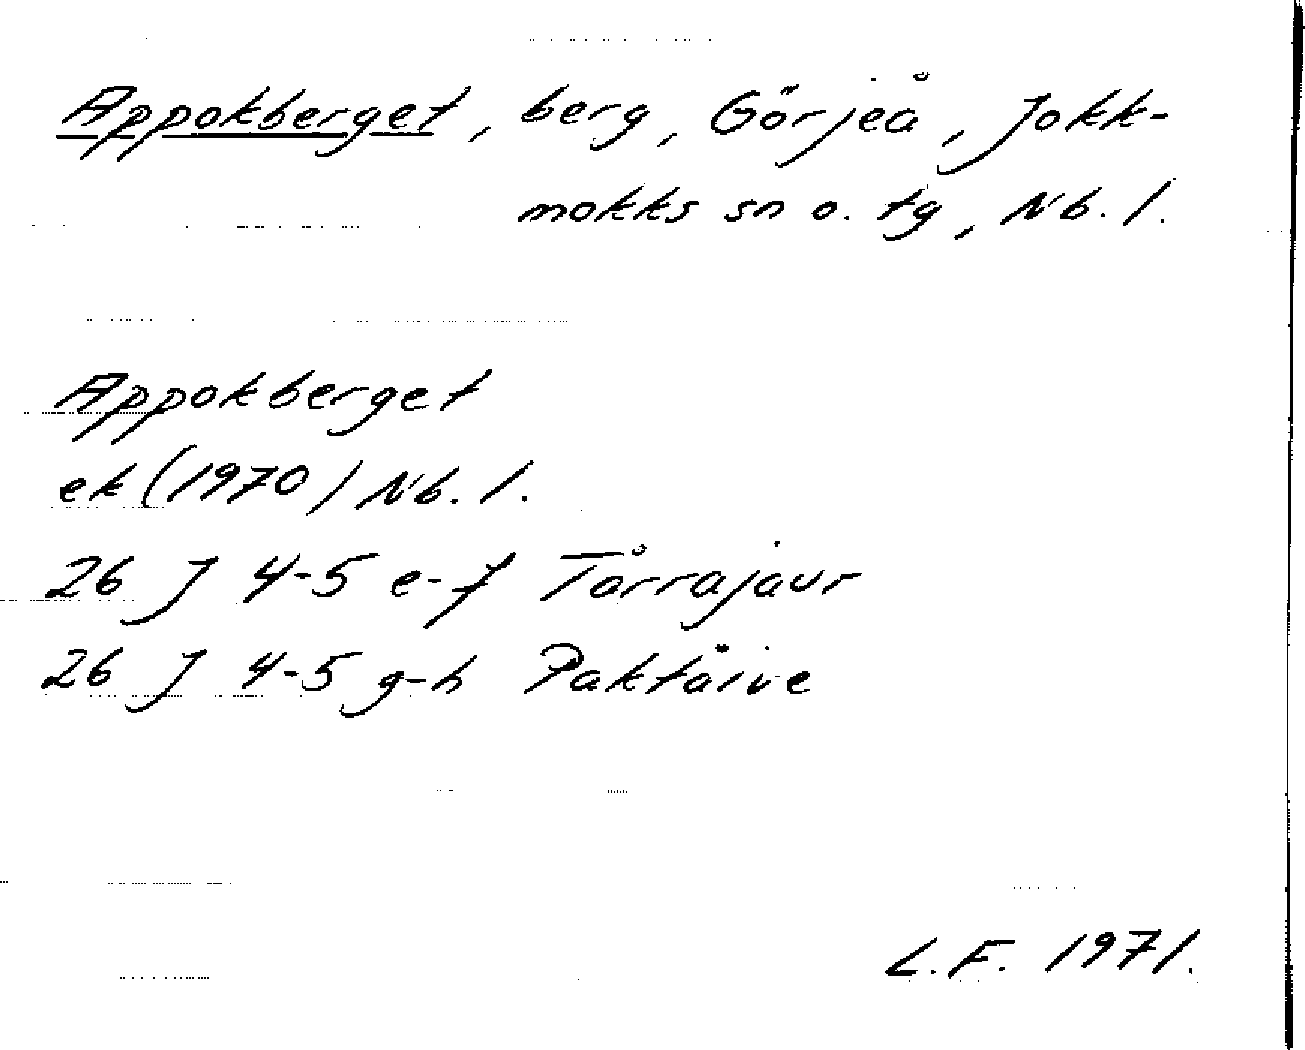 Appokberget, berg, Görjeå, Jokk-
mokks sn o. tg, Nb. l.
Appokberget
ek (1970) Nb. l.
26 J 4-5 e-f Tårrajaur
26 J 4-5 g-h Paktäive
L.F. 1971.